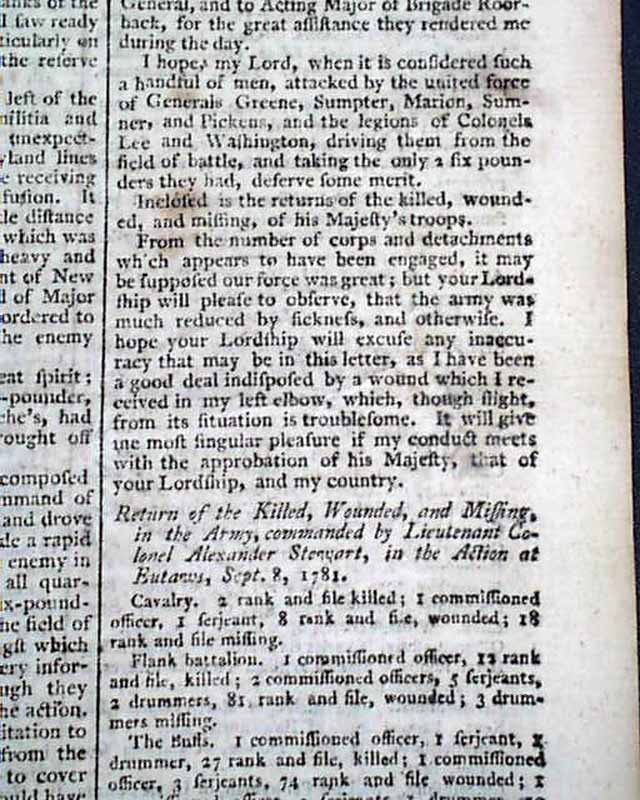 anks of the
l ſaw ready
ticularly on
the reſerve
left of the
militia and
unexpect-
yland lines
e receiving
fuſion. It
le diſtance
which was
heavy and
nt of New
d of Major
ordered to
he enemy
eat ſpirit;
-pounder,
che's, had
rought off
compoſed
mmand of
and drove
de a rapid
enemy in
all quar-
x-pound-
he field of
gſt which
ery infor-
ugh they
he action.
itation to
from the
to cover
ould have
General, and to Acting Major of Brigade Roor-
back, for the great aſſiſtance they rendered me
during the day.
I hope, my Lord, when it is conſidered ſuch
a handful of men, attacked by the united force
of Generals Greene, Sumpter, Marion, Sum-
ner, and Pickens, and the legions of Colonels
Lee and Waſhington, driving them from the
field of battle, and taking the only 2 ſix poun-
ders they had, deſerve ſome merit.
Incloſed is the returns of the killed, wound-
ed, and miſſing, of his Majeſty's troops.
From the number of corps and detachments
wh'ch appears to have been engaged, it may
be ſuppoſed our force was great; but your Lord-
ſhip will pleaſe to obſerve, that the army was
much reduced by ſickneſs, and otherwiſe. I
hope your Lordſhip will excuſe any inaccu-
racy that may be in this letter, as I have been
a good deal indiſpoſed by a wound which I re-
ceived in my left elbow, which, though ſlight,
from its ſituation is troubleſome. It will give
me moſt ſingular pleaſure if my conduct meets
with the approbation of his Majeſty, that of
your Lordſhip, and my country.
Return of the Killed, Wounded, and Miſſing,
in the Army, commanded by Lieutenant Co-
lonel Alexander Stewart, in the Action at
Eutaws, Sept. 8, 1781.
Cavalry. 2 rank and file killed; 1 commiſſioned
officer, 1 ſerjeant, 8 rank and file, wounded; 18
rank and file miſſing.
Flank battalion. 1 commiſſioned officer, 12 rank
and file, killed; 2 commiſſioned officers, 5 ſerjeants,
2 drummers, 81 rank and file, wounded; 3 drum-
mers miſſing.
The Buffs. 1 commiſſioned officer, 1 ſerjeant, 1
drummer, 27 rank and file, killed; 1 commiſſioned
officer, 3 ſerjeants, 74 rank and file wounded; 1